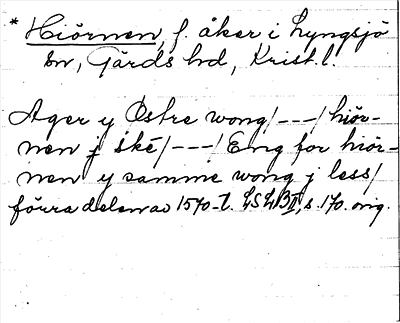 * Hiörnen, f. åker i Lyngsjö
sn, Gärds hd, Krist. l.
Ager y Östre wong/---/hiör-
nen j ské/---/Eng for hiör-
nen y samme wong j less/
förra delen av 1570-t. LSLB II, s. 170. orig.